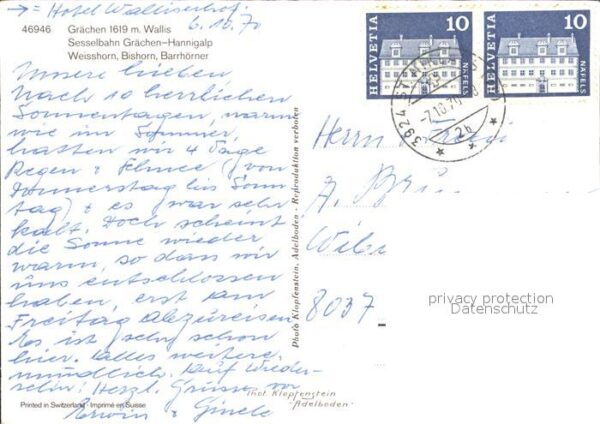 → = Hotel Walliserhof.
6.10.70
46946 Grächen 1619 m. Wallis
Sesselbahn Grächen–Hannigalp
Weisshorn, Bishorn, Barrhörner
Unsere Lieben,
Nach 10 herrlichen
Sonnentagen, warm
wie im Sommer,
hatten wir 4 Tage
Regen & Schnee (von
Donnerstag bis Sonn
tag) & es war sehr
kalt. Doch scheint
die Sonne wieder
warm, so dass wir
uns entschlossen
haben, erst am
Freitag abzureisen
Es ist sehr schön
hier. Alles weitere
mündlich. Auf Wieder-
sehn! Herzl. Grüsse von
Erwin & Gisele
Printed in Switzerland - Imprimé en Suisse
Photo Klopfenstein, Adelboden - Reproduktion verboten
HELVETIA 10 NÄFELS
HELVETIA 10 NÄFELS
3924 ST. NIKLAUS
-7.10.70
2b
Herrn
A.
8037
privacy protection
Datenschutz
Phot. Klopfenstein
Adelboden